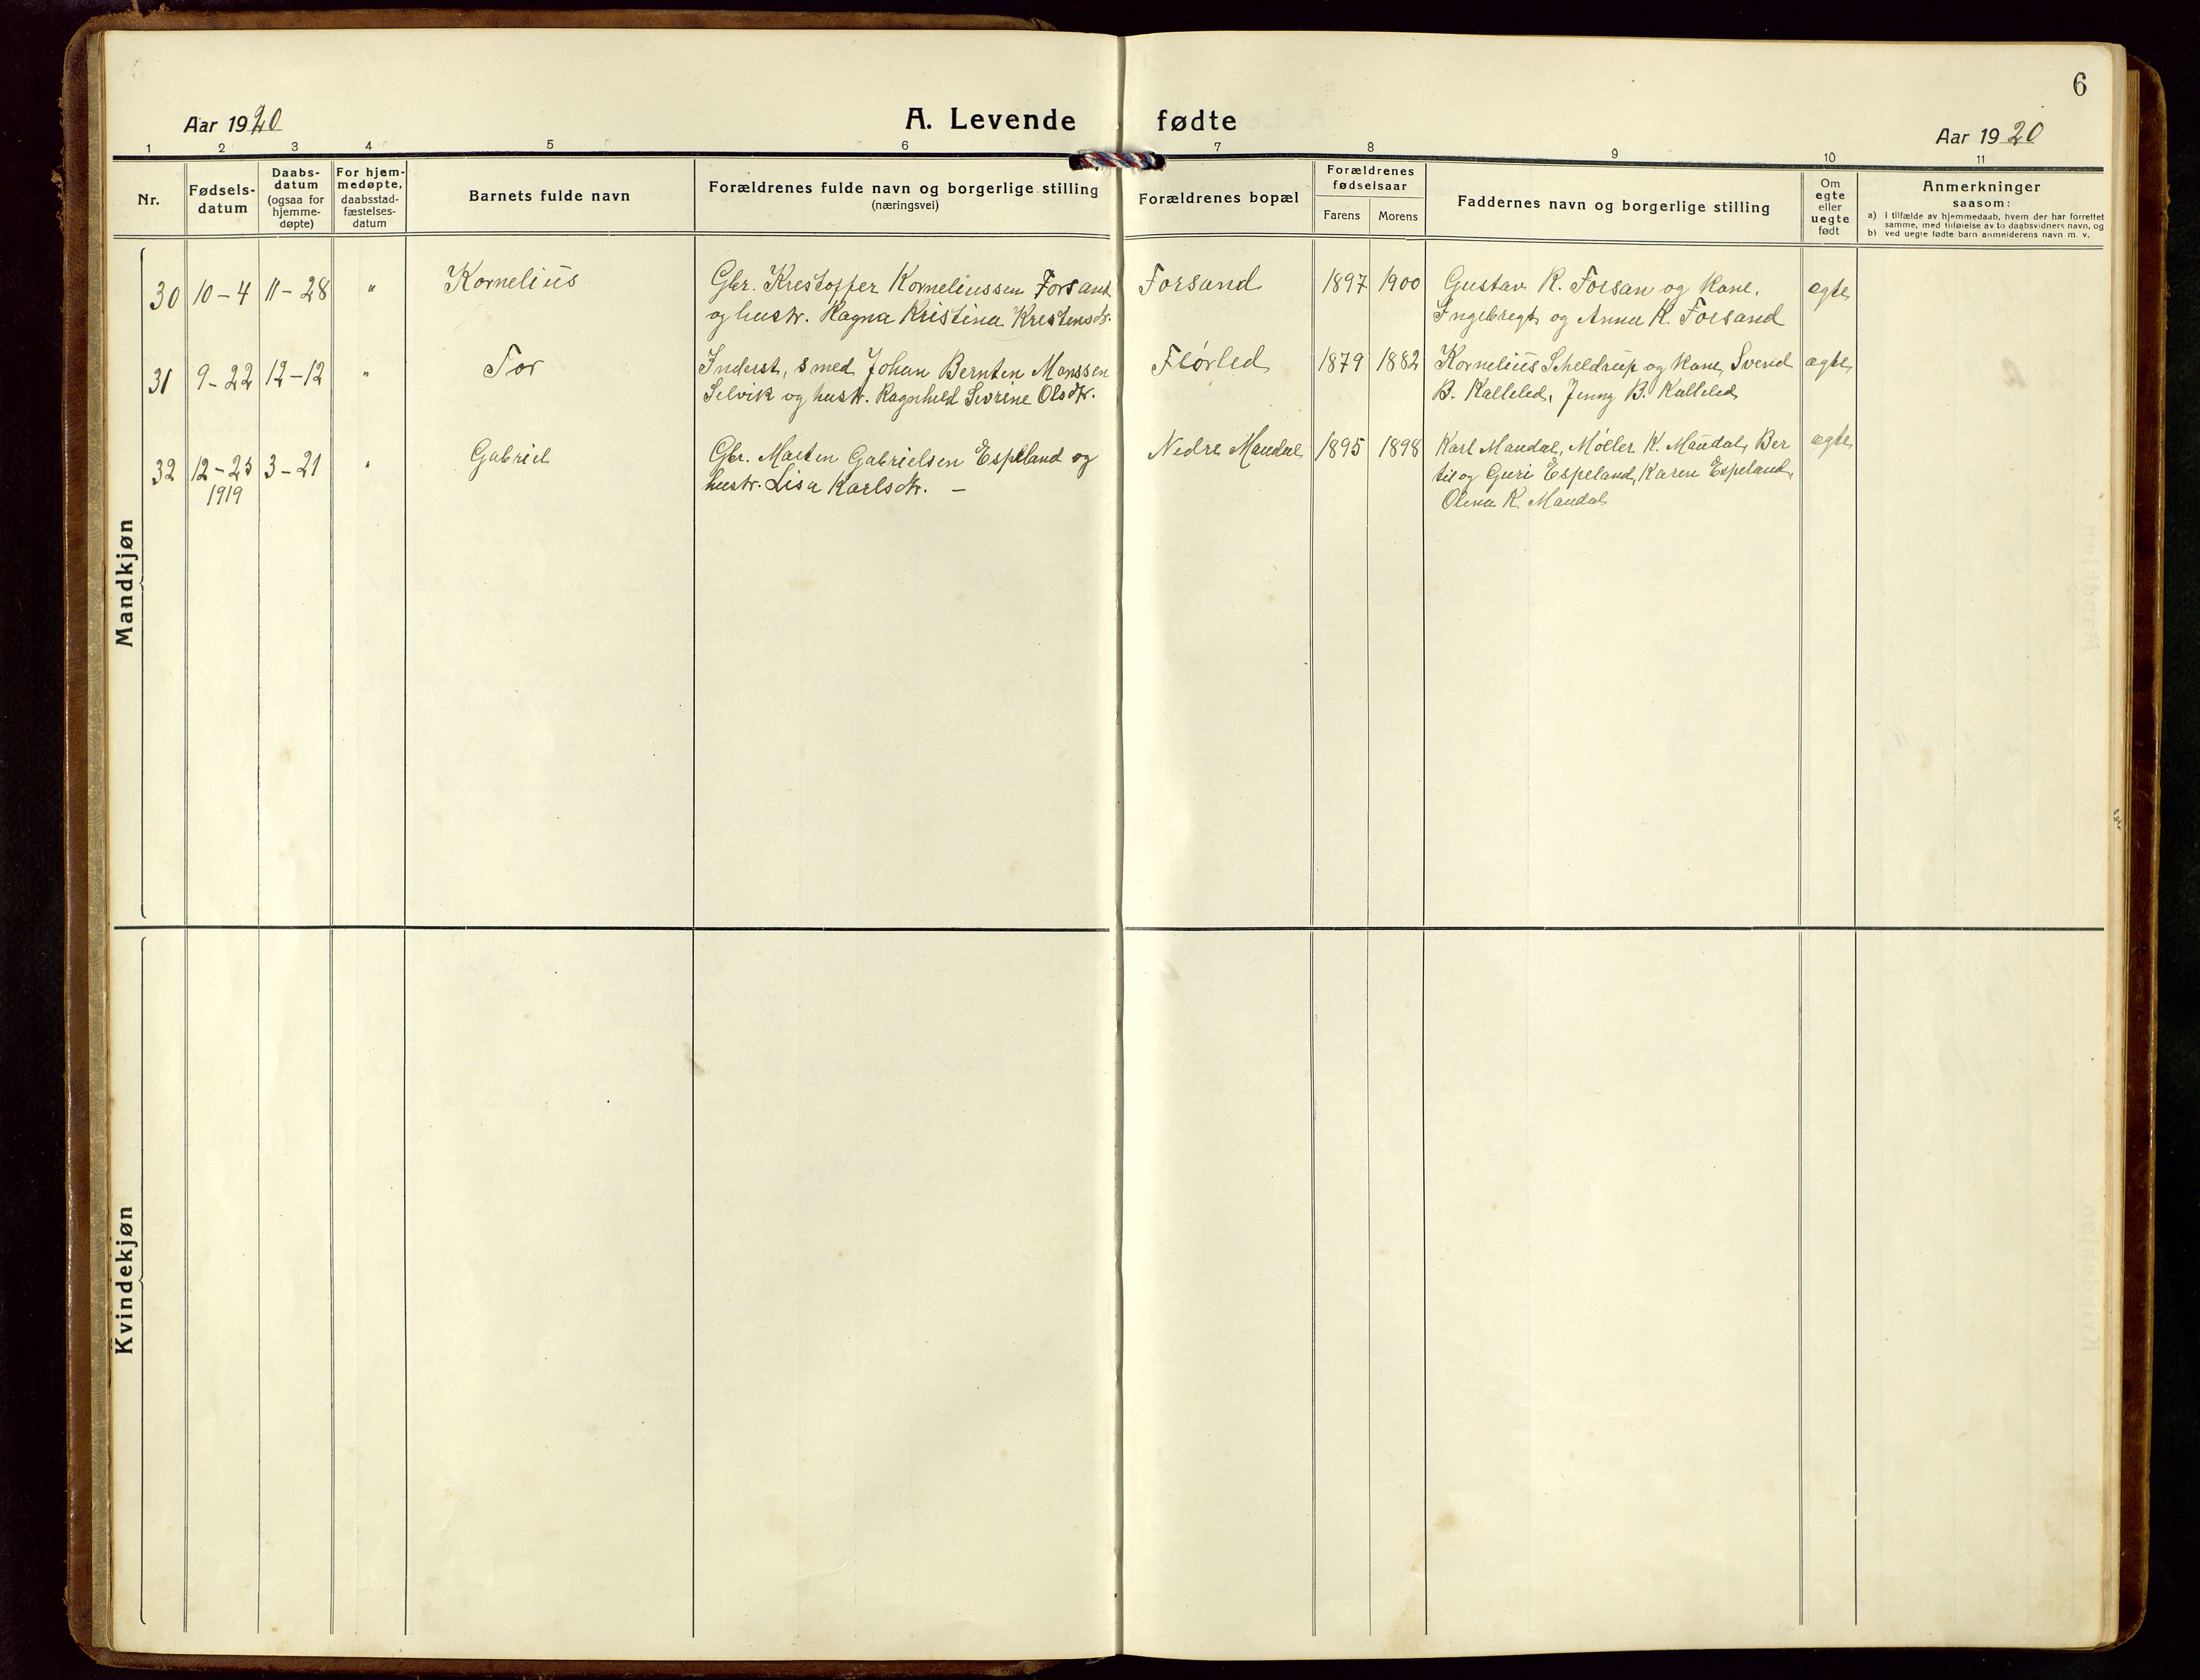 6
Aar 1920
A. Levende fødte
Aar 1920
1 2 3 4 5 6 7 8 9 10 11
Nr.
Fødsels-
datum
Daabs-
datum
(ogsaa for
hjemme-
døpte)
For hjem-
medøpte,
daabsstad-
fæstelses-
datum
Barnets fulde navn
Forældrenes fulde navn og borgerlige stilling
(næringsvei)
Forældrenes bopæl
Forældrenes
fødselsaar
Farens Morens
Faddernes navn og borgerlige stilling
Om
egte
eller
uegte
født
Anmerkninger
saasom:
a) i tilfælde av hjemmedaab, hvem der har forrettet
samme, med tilføielse av to daabsvidners navn, og
b) ved uegte fødte barn anmelderens navn m. v.
Mandkjøn
30 10-4 11-28 " Kornelius Gbr. Krestoffer Korneliussen Forsand Forsand 1897 1900 Gustav K. Forsan og Kone, egte
og hustr. Ragna Kristina Kristensdtr. Ingebregt og Anna K. Forsand
31 9-22 12-12 " Tor Inderst, smed Johan Berntin Monssen Flørled 1879 1882 Kornelius Scheldrup og Kone, Sverid egte
Selvik og hustr. Ragnhild Sevrine Olsdtr. B. Kalleled, Jenny B. Kalleled
32 12-23 3-21 " Gabriel Gbr. Marten Gabrielsen Espeland og Nedre Maudal 1895 1898 Karl Maudal, Møller K. Maudal, Ber egte
1919 hustr. Lisa Karlsdtr. – til og Guri Espeland, Karen Espeland,
Olena K. Maudal
Kvindekjøn